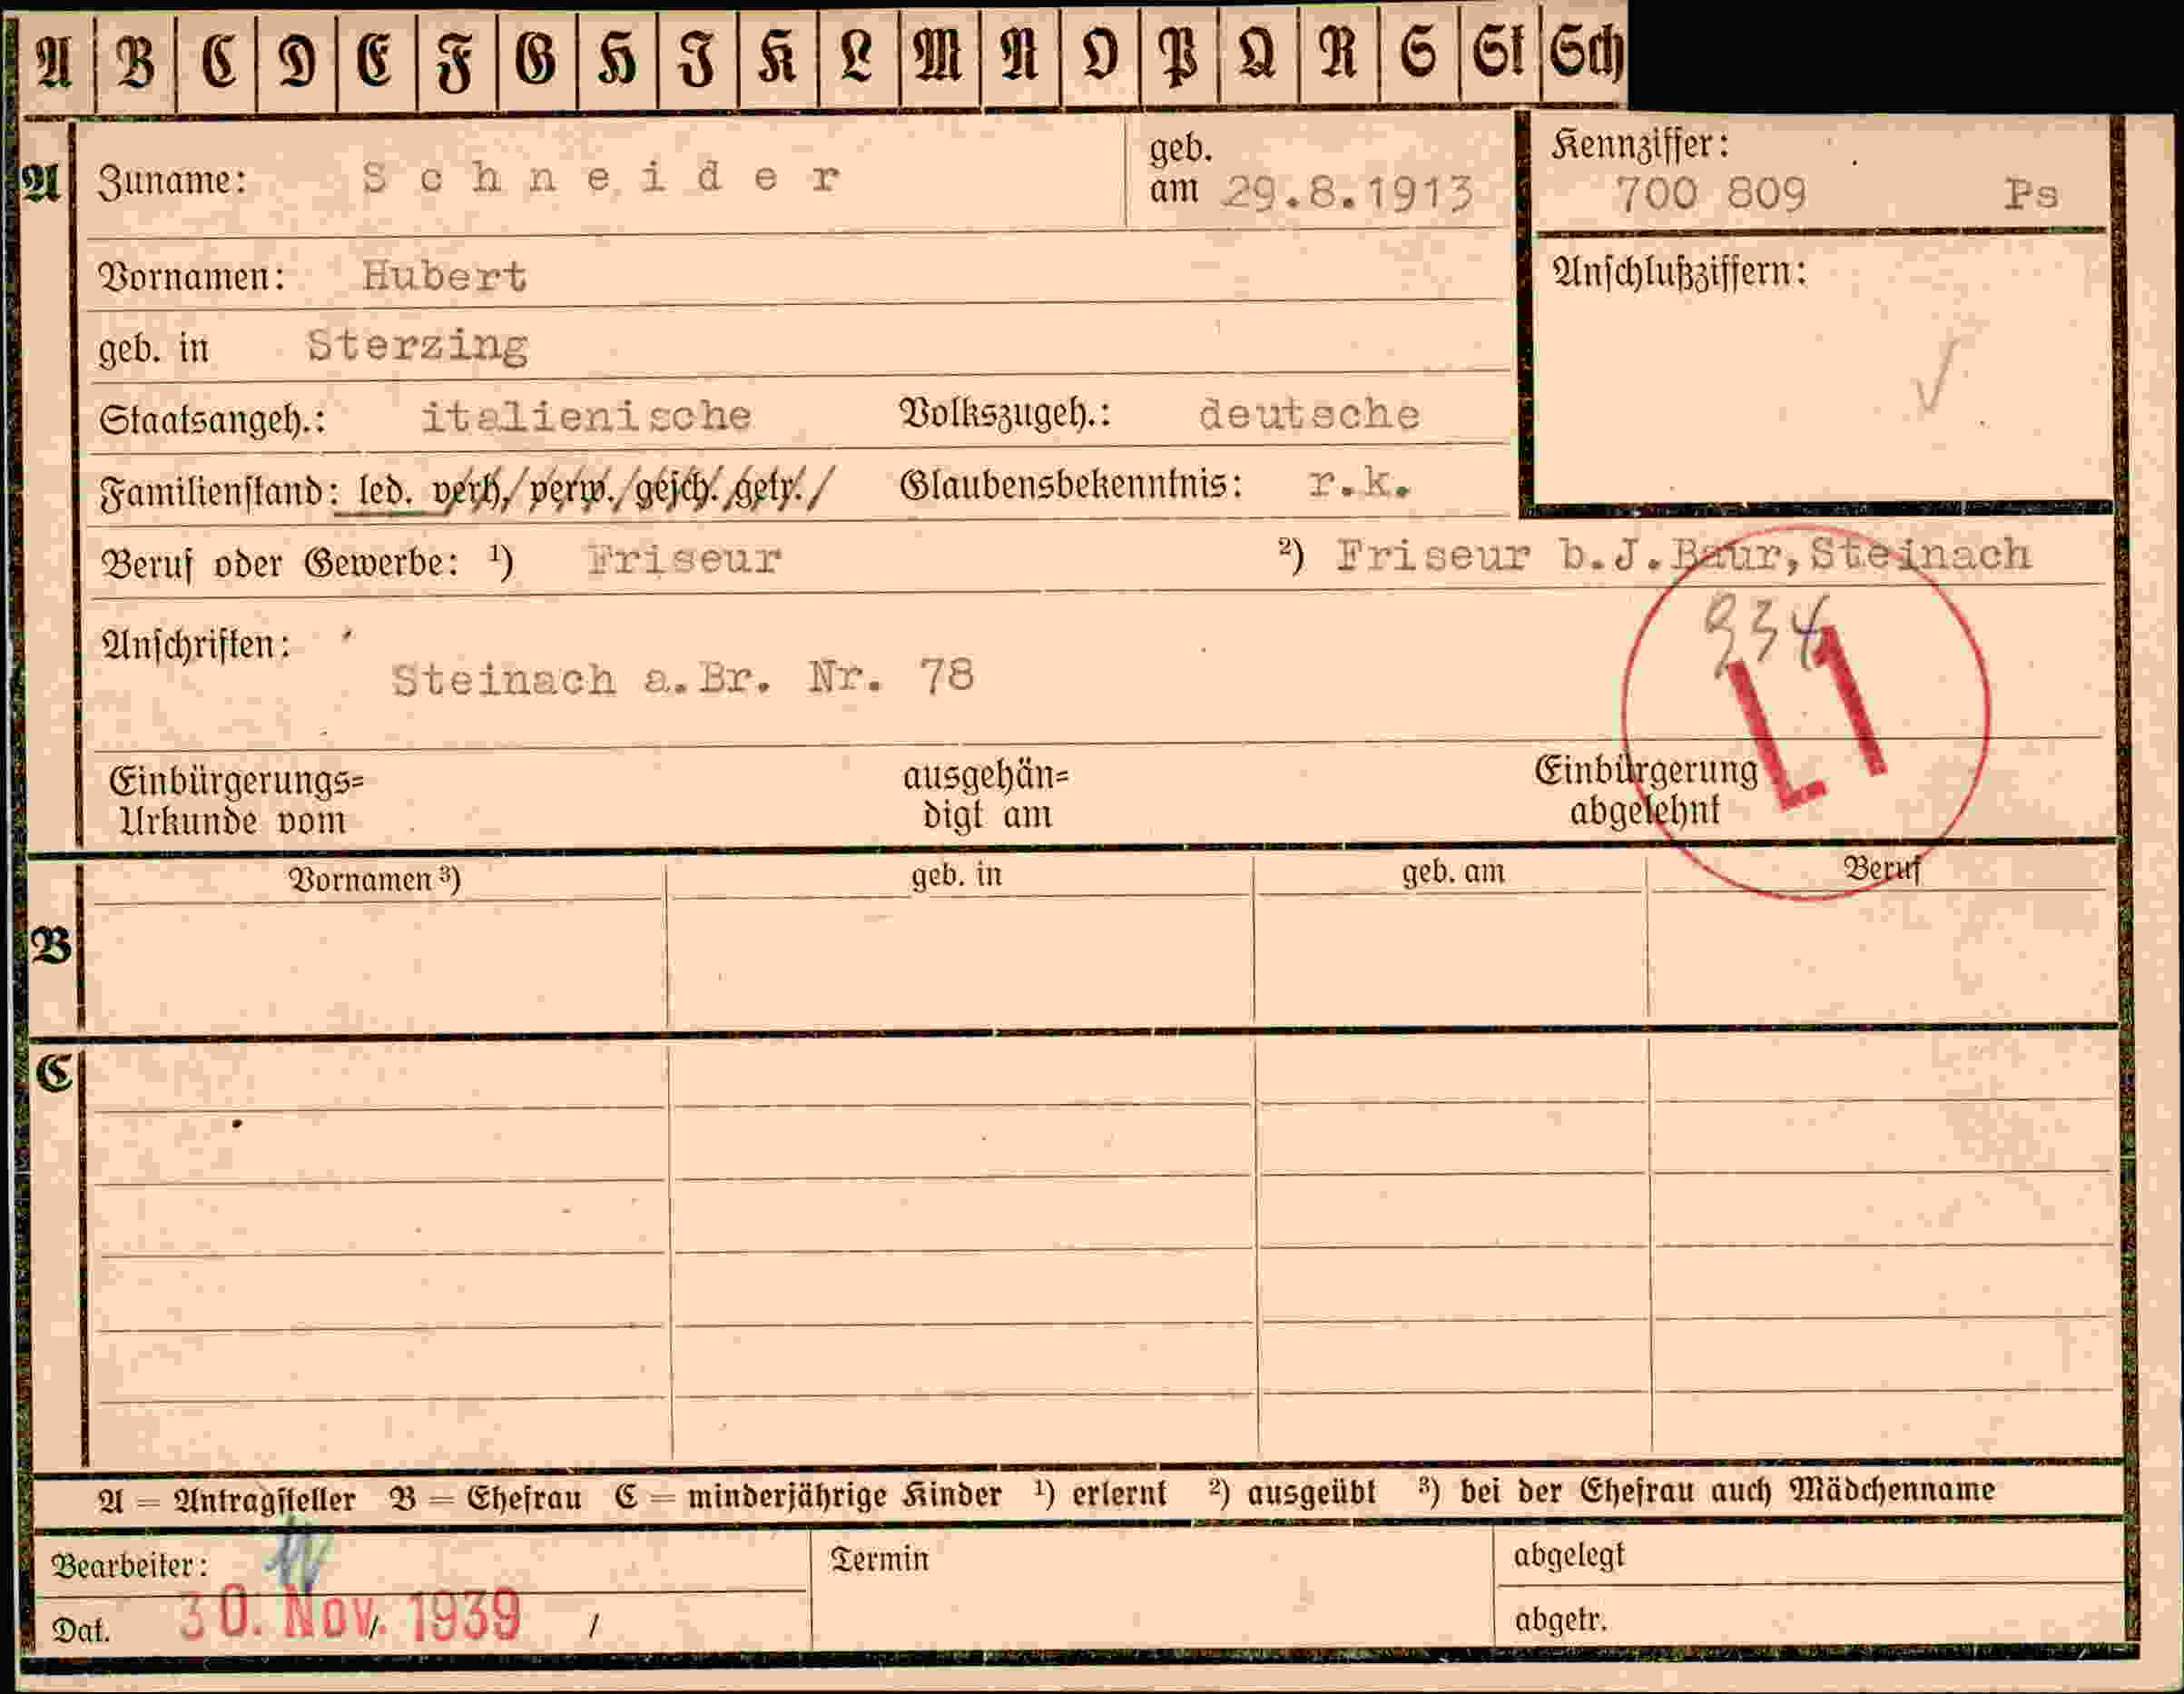 A B C D E F G H I K L M N O P Q R S St Sch
A
Zuname: Schneider
geb. am 29.8.1913
Kennziffer:
700 809 Ps
Vornamen: Hubert
Anschlußziffern:
geb. in Sterzing
Staatsangeh.: italienische Volkszugeh.: deutsche
Familienstand: led. verh./verw./gesch./getr./ Glaubensbekenntnis: r.k.
Beruf oder Gewerbe: ¹) Friseur ²) Friseur b.J.Baur,Steinach
934
Anschriften:
Steinach a.Br. Nr. 78
L1
Einbürgerungs=
Urkunde vom
ausgehän=
digt am
Einbürgerung
abgelehnt
Vornamen ³) geb. in geb. am Beruf
B
C
A = Antragsteller B = Ehefrau C = minderjährige Kinder ¹) erlernt ²) ausgeübt ³) bei der Ehefrau auch Mädchenname
Bearbeiter:
Termin
abgelegt
Dat. 30. Nov. 1939 /
abgetr.